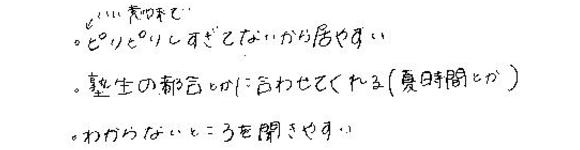 いい意味で
・ピリピリしすぎてないから居やすい
・塾生の都合とかに合わせてくれる(夏時間とか)
・わからないところを聞きやすい